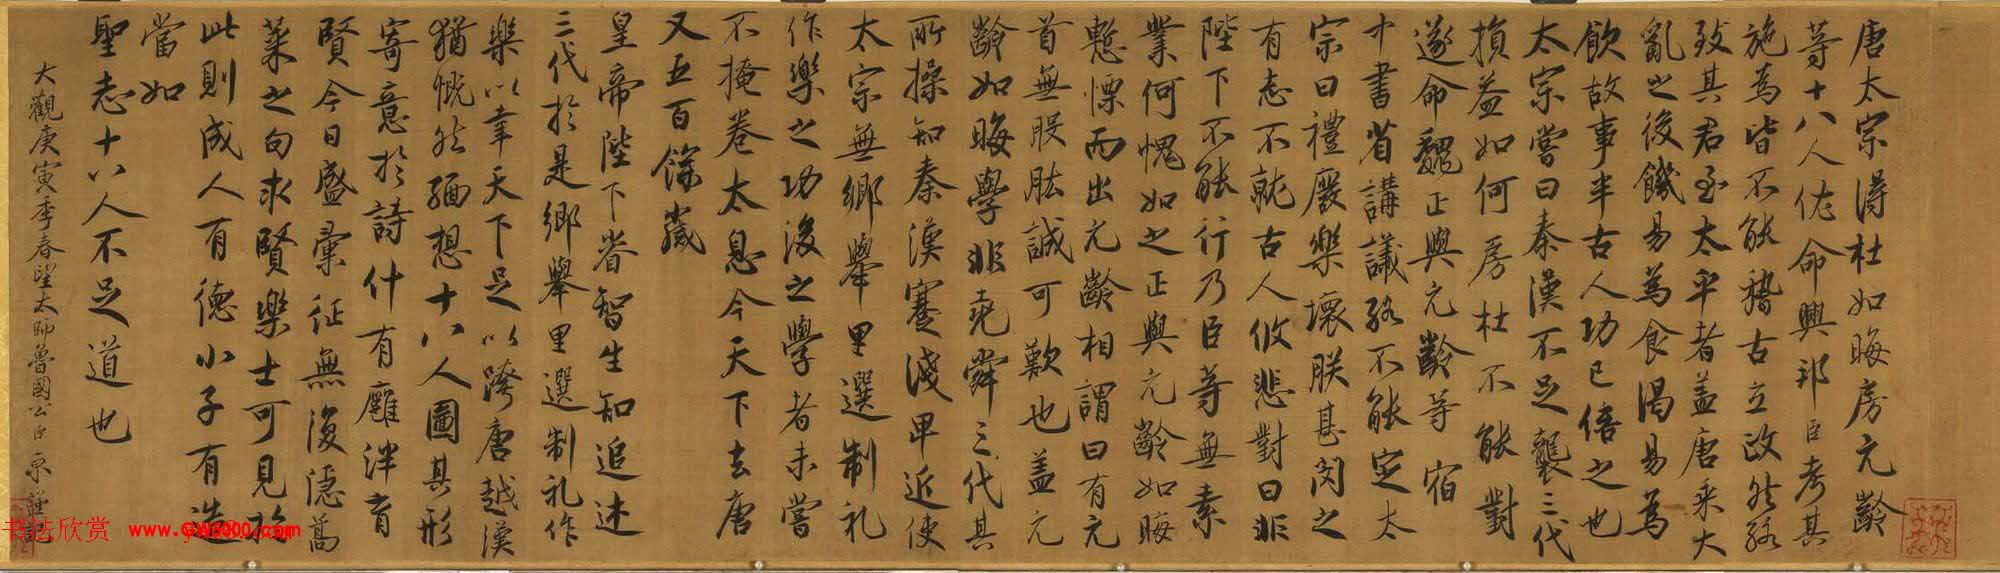 唐太宗得杜如晦房元齡
等十八人佐命興邦臣考其
施為皆不能稽古立政然終
致其君至太平者盖唐乘大
亂之後饑易為食渴易為
飲故事半古人功已倍之也
太宗嘗曰秦漢不足襲三代
損益如何房杜不能對
遂命魏正與元齡等宿
中書省講議終不能定太
宗曰禮廢樂壞朕甚閔之
有志不就古人攸悲對曰非
陛下不能行乃臣等無素
業何愧如之正與元齡如晦
慙慄而出元齡相謂曰有元
首無股肱誠可歎也盖元
齡如晦學非堯舜三代其
所操知秦漢蹇淺卑近使
太宗無鄉舉里選制礼
作樂之功後之學者未嘗
不掩卷太息今天下去唐
又五百餘歲
皇帝陛下睿智生知追述
三代於是鄉舉里選制礼作
樂以幸天下足以跨唐越漢
猶慨然緬想十八人圖其形
寄意於詩什有廱泮育
賢今日盛彙征無復隱嵩
萊之句求賢樂士可見於
此則成人有德小子有造
當如
聖志十八人不足道也
大觀庚寅季春望太師魯國公臣京謹記
书法欣赏 www.9W6000.com